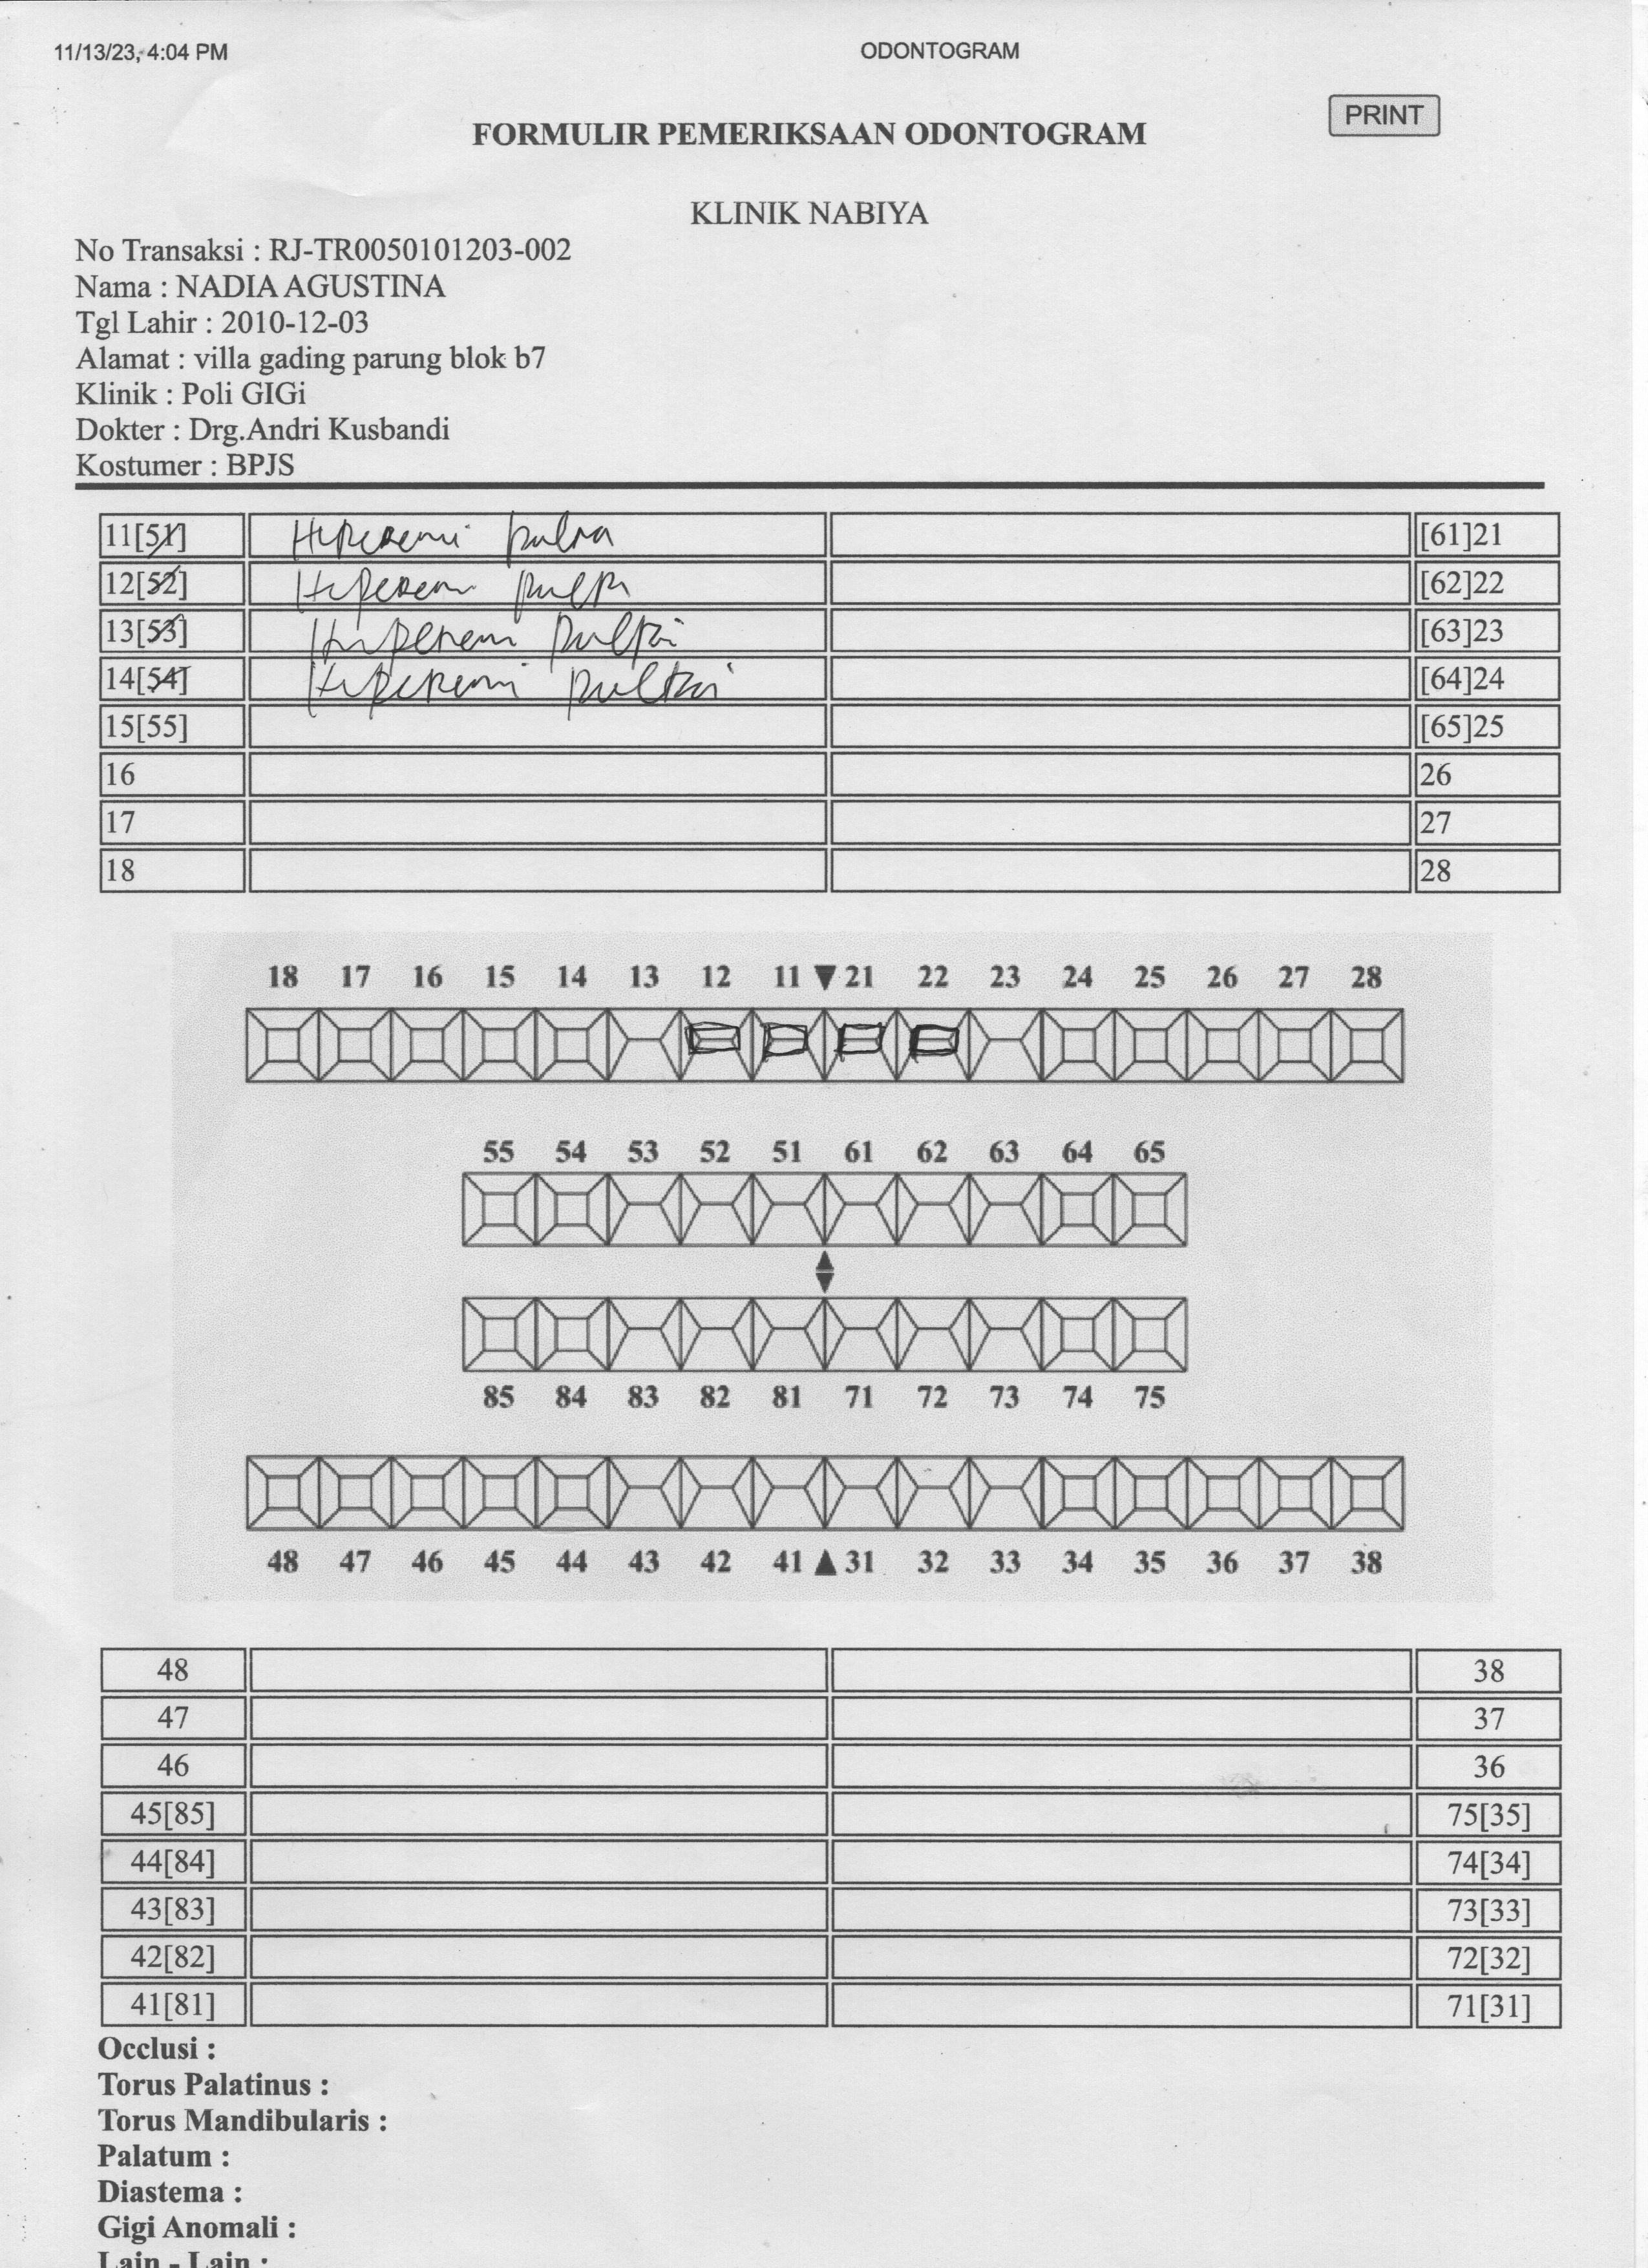 11/13/23, 4:04 PM ODONTOGRAM
PRINT
FORMULIR PEMERIKSAAN ODONTOGRAM
KLINIK NABIYA
No Transaksi : RJ-TR0050101203-002
Nama : NADIA AGUSTINA
Tgl Lahir : 2010-12-03
Alamat : villa gading parung blok b7
Klinik : Poli GIGi
Dokter : Drg.Andri Kusbandi
Kostumer : BPJS
11[51] Hiperemi pulpa [61]21
12[52] Hiperemi pulpa [62]22
13[53] Hiperemi pulpa [63]23
14[54] Hiperemi pulpa [64]24
15[55] [65]25
16 26
17 27
18 28
18 17 16 15 14 13 12 11 21 22 23 24 25 26 27 28
55 54 53 52 51 61 62 63 64 65
85 84 83 82 81 71 72 73 74 75
48 47 46 45 44 43 42 41 31 32 33 34 35 36 37 38
48 38
47 37
46 36
45[85] 75[35]
44[84] 74[34]
43[83] 73[33]
42[82] 72[32]
41[81] 71[31]
Occlusi :
Torus Palatinus :
Torus Mandibularis :
Palatum :
Diastema :
Gigi Anomali :
Lain - Lain :